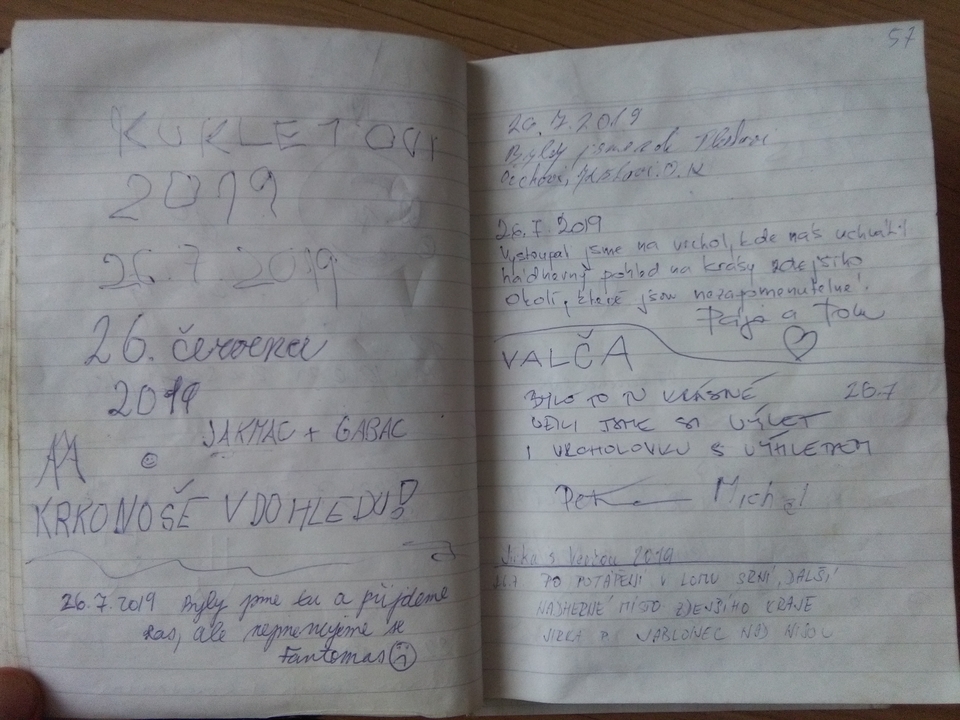 KUKLETOVI
2019
26.7 2019
26. července
2019
JAKMAC + GABAC
KRKONOŠE V DOHLEDU!
26.7.2019 Byly jsme tu a přijdeme
zas, ale nejmenujeme se
Fantomas
57
26.7.2019
Byly jsme
26.7.2019
Vystoupali jsme na vrchol, kde nás uchvátil
nádherný pohled na krásy zdejšího
okolí, které jsou nezapomenutelné!
Pája a Tom
VALČA
BYLO TO TU KRÁSNÉ 26.7
UŽILI JSME SI VÝLET
I VRCHOLOVKU S VÝHLEDEM
Michal
Jirka s 2019
26.7 PO POTÁPĚNÍ V LOMU SRNÍ, DALŠÍ
NÁDHERNÉ MÍSTO ZDEJŠÍHO KRAJE
JIRKA P. JABLONEC NAD NISOU